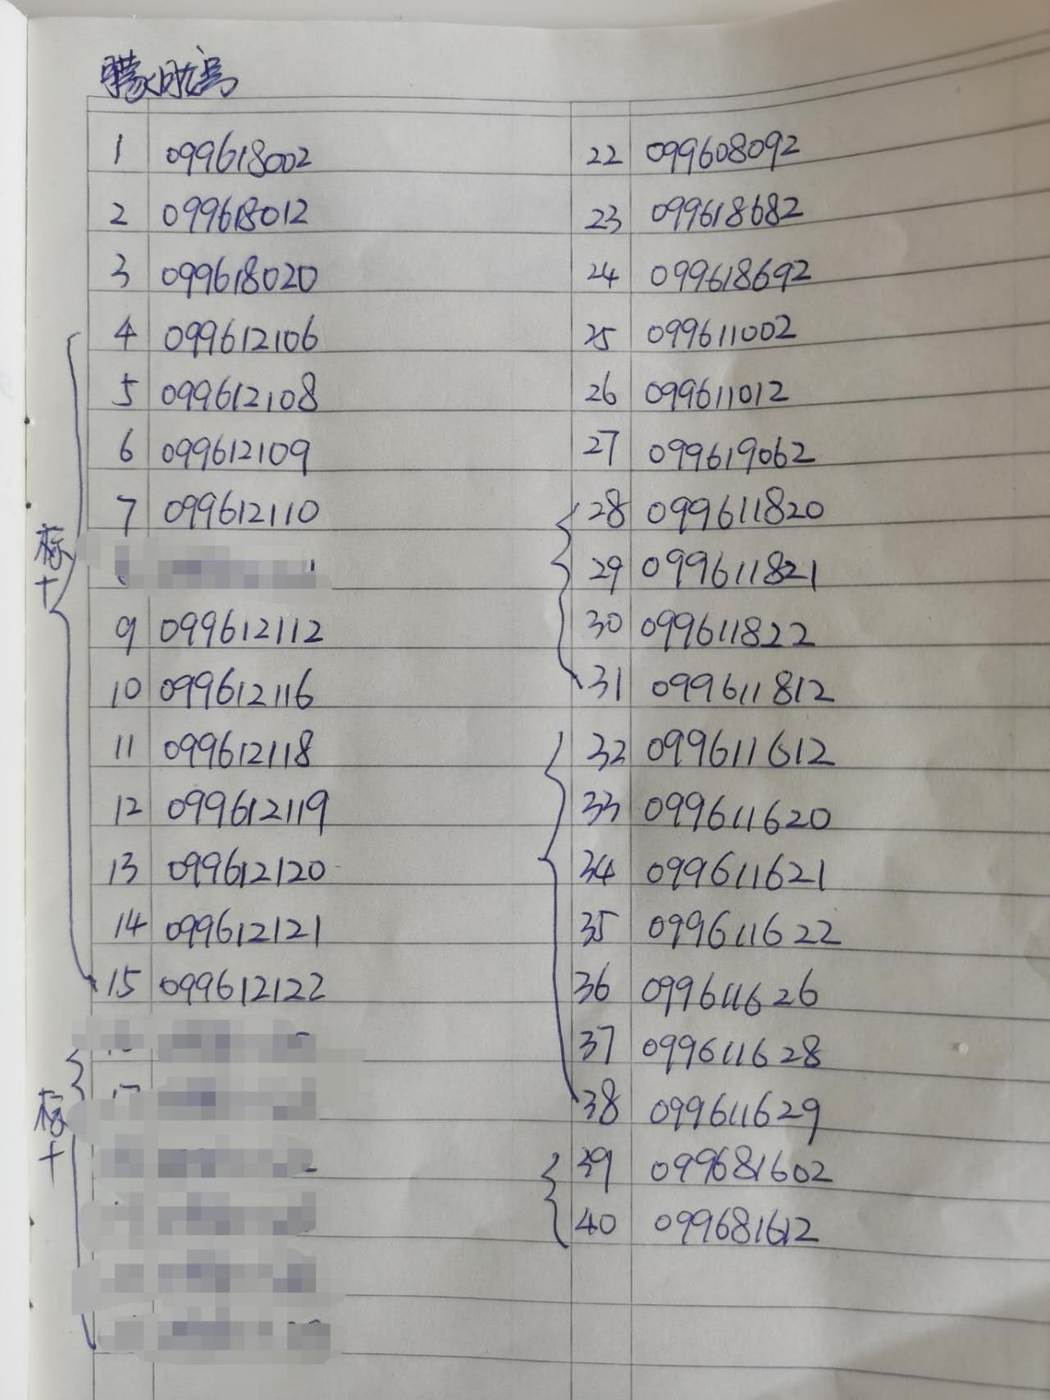 1 099618002
2 099618012
3 099618020
4 099612106
5 099612108
6 099612109
7 099612110
标十
9 099612112
10 099612116
11 099612118
12 099612119
13 099612120
14 099612121
15 099612122
标十
22 099608092
23 099618682
24 099618692
25 099611002
26 099611012
27 099619062
28 099611820
29 099611821
30 099611822
31 099611812
32 099611612
33 099611620
34 099611621
35 099611622
36 099611626
37 099611628
38 099611629
39 099681602
40 099681612